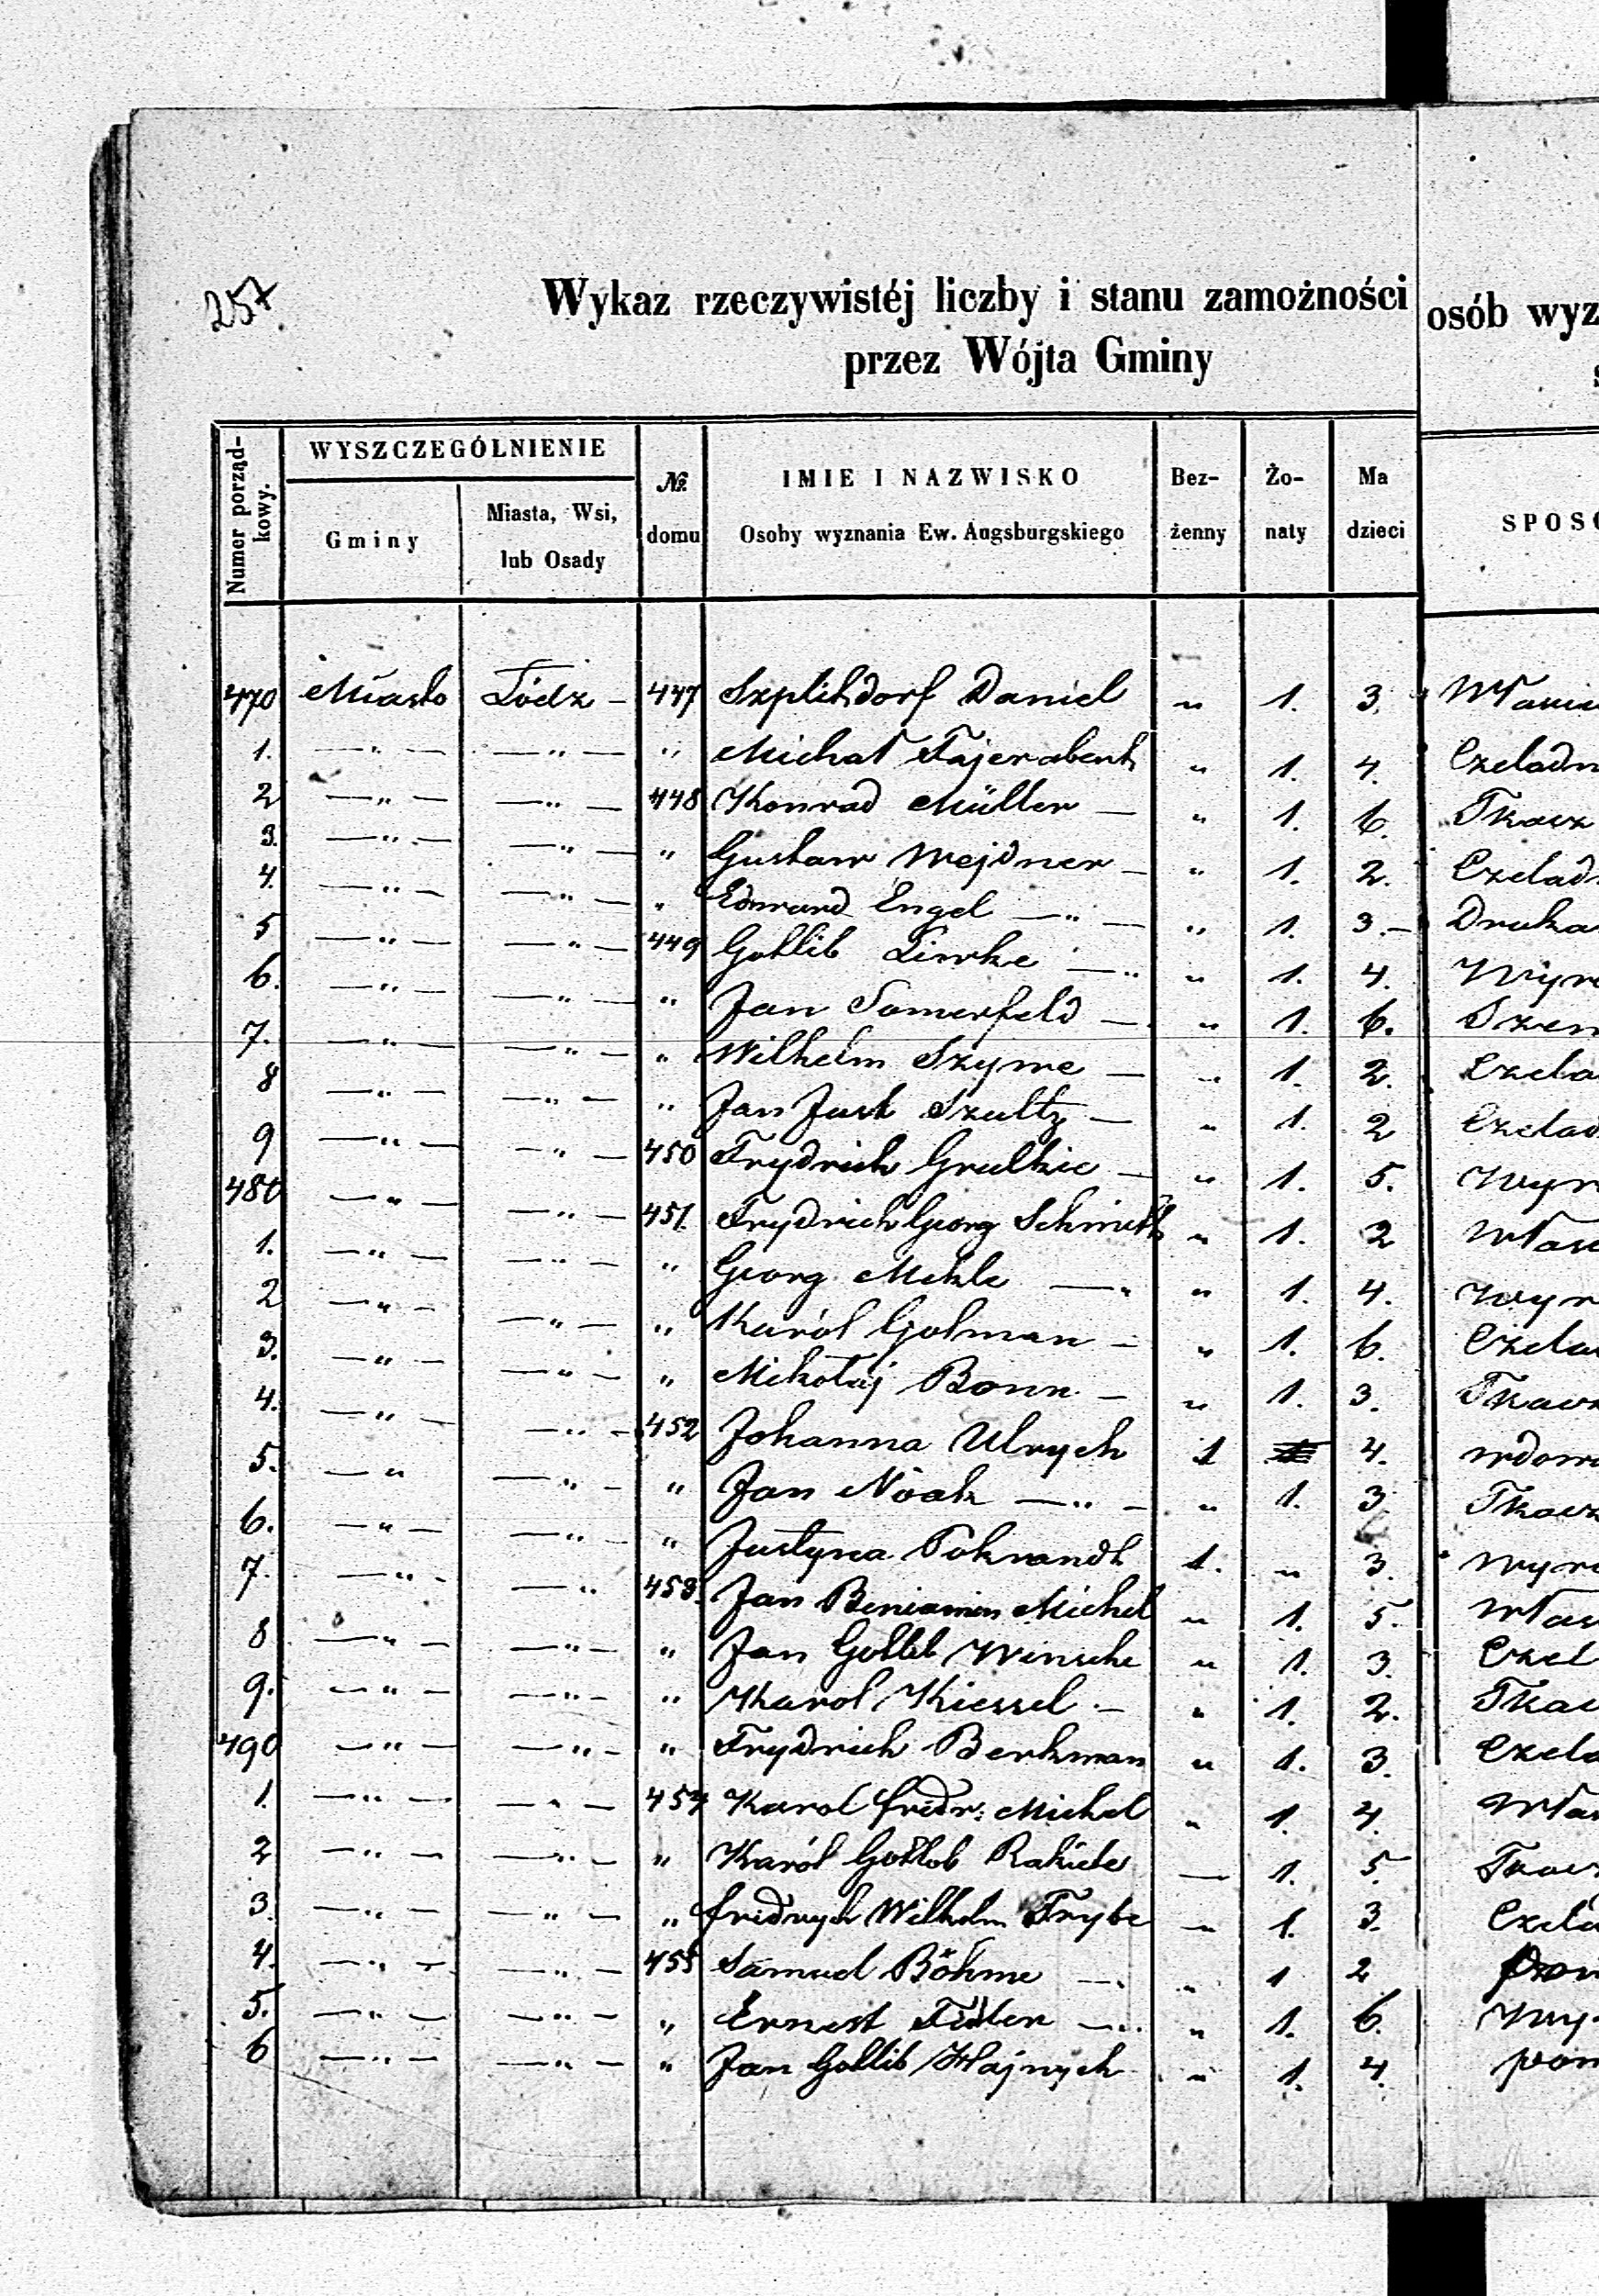 257
Wykaz rzeczywistéj liczby i stanu zamożności osób wyz
przez Wójta Gminy
Numer porządkowy. WYSZCZEGÓLNIENIE № domu IMIE I NAZWISKO Bez- Żo- Ma
Gminy Miasta, Wsi, lub Osady Osoby wyznania Ew. Augsburgskiego żenny naty dzieci SPOSO
470 Miasto Łódz — 447 Szplitdorf Daniel " 1. 3. Właści
1. —"— —"— " Michał Fajerabent " 1. 4. Czeladn
2 —"— —"— 448 Konrad Müller — " 1. 6. Tkacz
3. —"— —"— " Gustaw Wejdner — " 1. 2. Czelad
4. —"— —"— " Edward Engel —"— " 1. 3.— Druka
5 —"— —"— 449 Gottlib Liwke —" " 1. 4. Wyro
6. —"— —"— " Jan Somerfeld — " 1. 6.
7. —"— —"— " Wilhelm Szyme — " 1. 2. Czela
8 —"— —"— " Jan Just Szultz — " 1. 2 Czelad
9 —"— —"— 450 Frydrich Grulkie — " 1. 5. Wyr
480 —"— —"— 451. Frydrich Georg Schmidt " 1. 2 Właś
1. —"— —"— " Georg Mehle —" " 1. 4. Wyr
2 —"— —"— " Karól Golman — " 1. 6. Czela
3. —"— —"— " Mikołaj Bonn — " 1. 3. Tkacz
4. —"— —"— 452 Johanna Ulrych 1 4. wdow
5. —" —"— " Jan Noak —"— " 1. 3. Tkacz
6. —"— —"— " Justyna Pokrandt 1. " 3. wyro
7. —"— —" 453. Jan Beniamin Michel " 1. 5. Właś
8 —"— —"— " Jan Gottlib Winsche " 1. 3. Czel
9. —"— —"— " Karol Kiessel — " 1. 2. Tkac
490 —"— —"— " Frydrich Berkman " 1. 3. Czela
1. —"— —"— 454 Karol fridr: Michel " 1. 4. Właś
2 —"— —"— " Karól Gottlob — 1. 5. Tkacz
3. —"— —"— " fridrych Wilhelm Frybe " 1. 3. Czela
4. —"— —"— 455 Samuel Böhme —" " 1 2
5. —"— —"— " Ernest Fidler —" " 1. 6. Wy
6 —"— —"— " Jan Gottlib Hajnrych " 1. 4.